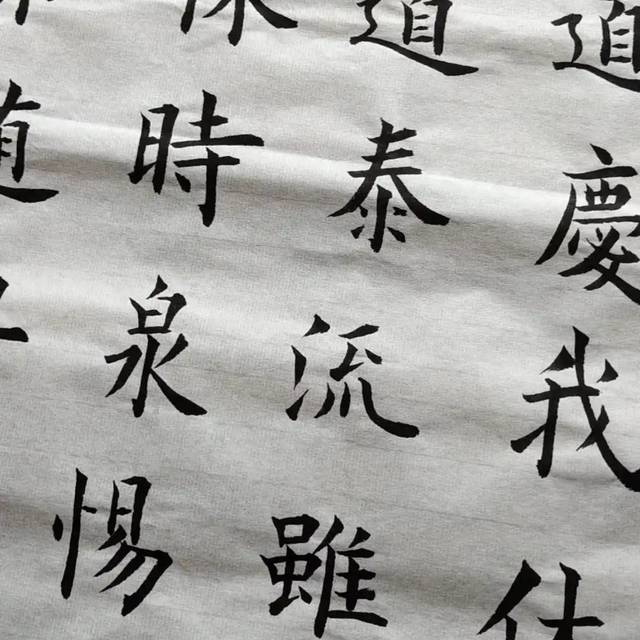 道道
時泰慶
泉流我
惕雖休